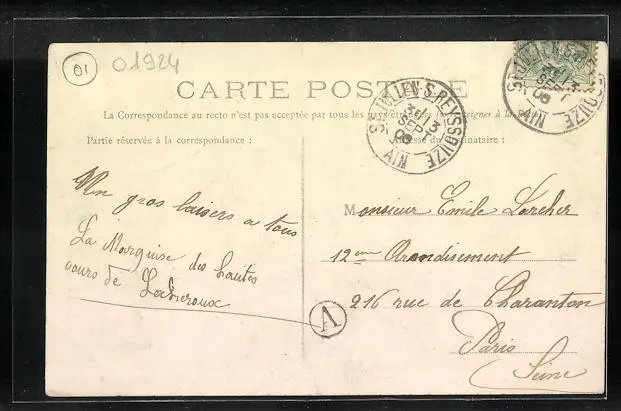 01 01924
CARTE POSTALE
La Correspondance au recto n'est pas acceptée par tous les pays étrangers (se renseigner à la Poste)
Partie réservée à la correspondance :
Adresse du destinataire :
ST JULIEN-S-REYSSOUZE
13
SEPT
06
AIN
ST JULIEN-S-REYSSOUZE
SEPT
06
AIN
Un gros baisers a tous
La Marquise des hautes
cours de
Monsieur Emile Larcher
12eme Arondisement
216 rue de Charanton
Paris
Seine
A